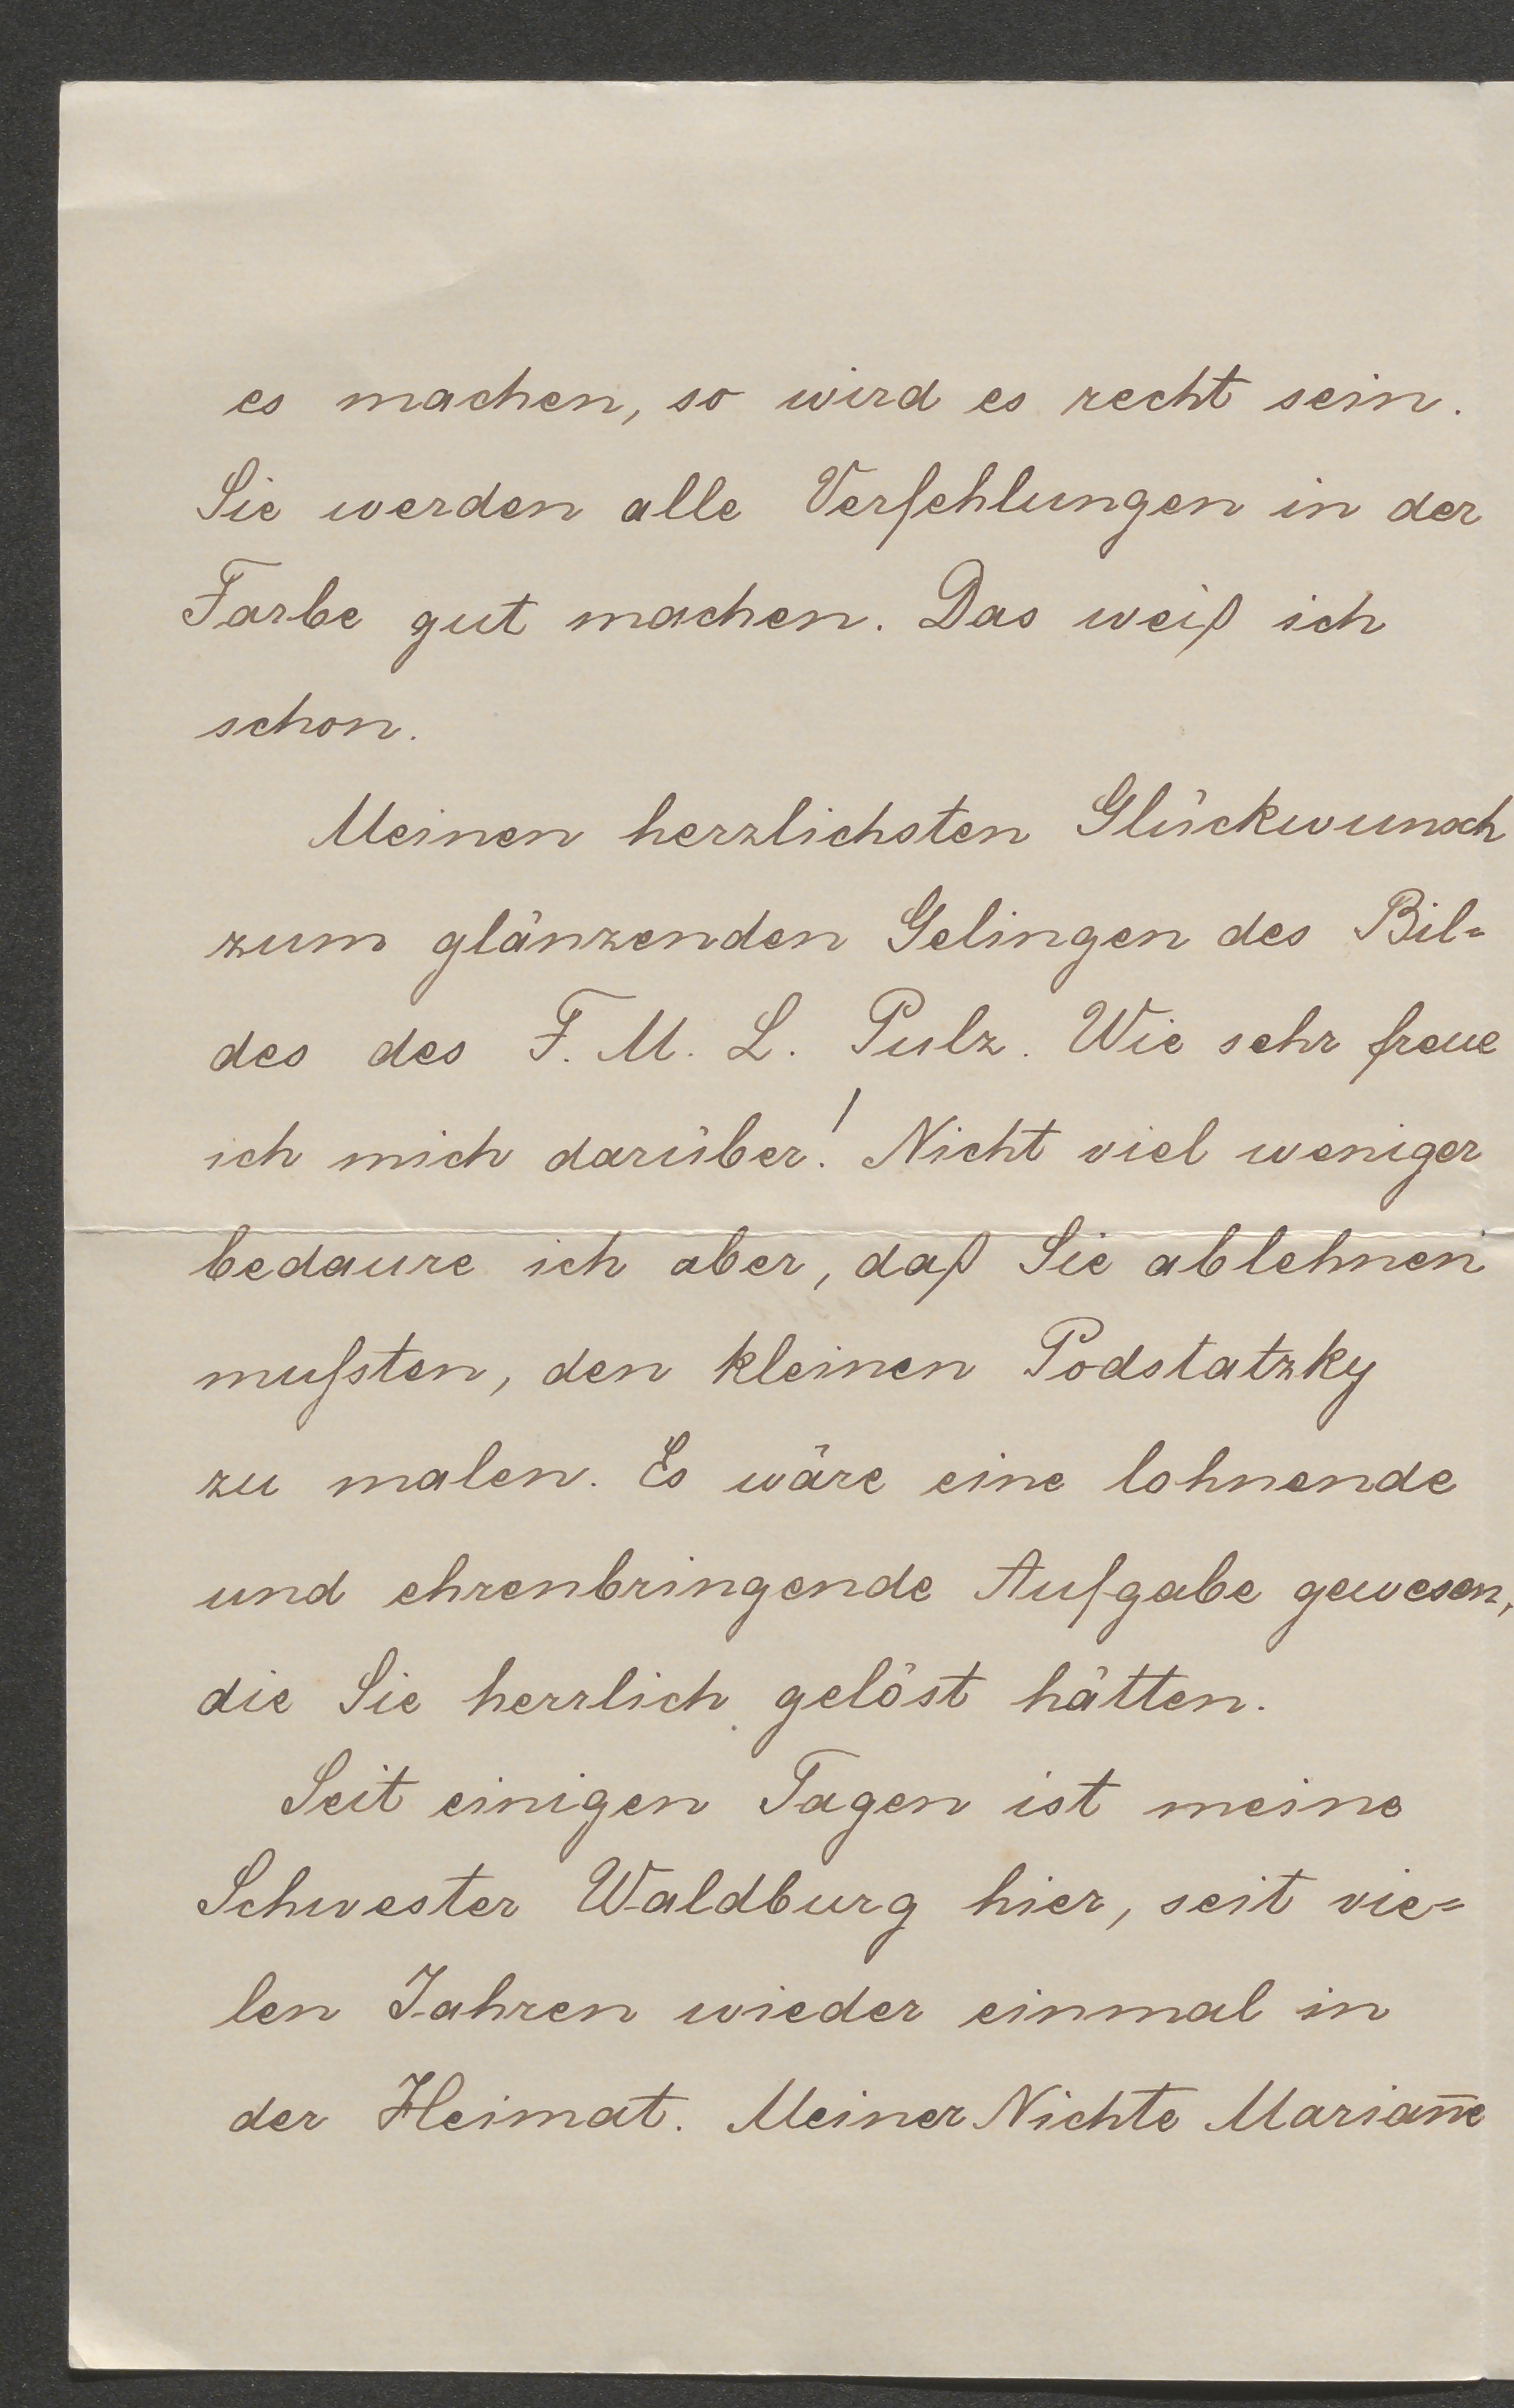 es machen, so wird es recht sein.
Sie werden alle Verfehlungen in der
Farbe gut machen. Das weiß ich
schon.
Meinen herzlichsten Glückwunsch
zum glänzenden Gelingen des Bil=
des des F. M. L. Pulz. Wie sehr freue
ich mich darüber! Nicht viel weniger
bedaure ich aber, daß Sie ablehnen
mußten, den kleinen Podstatzky
zu malen. Es wäre eine lohnende
und ehrenbringende Aufgabe gewesen,
die Sie herrlich gelöst hätten.
Seit einigen Tagen ist meine
Schwester Waldburg hier, seit vie=
len Jahren wieder einmal in
der Heimat. Meiner Nichte Marian̅e